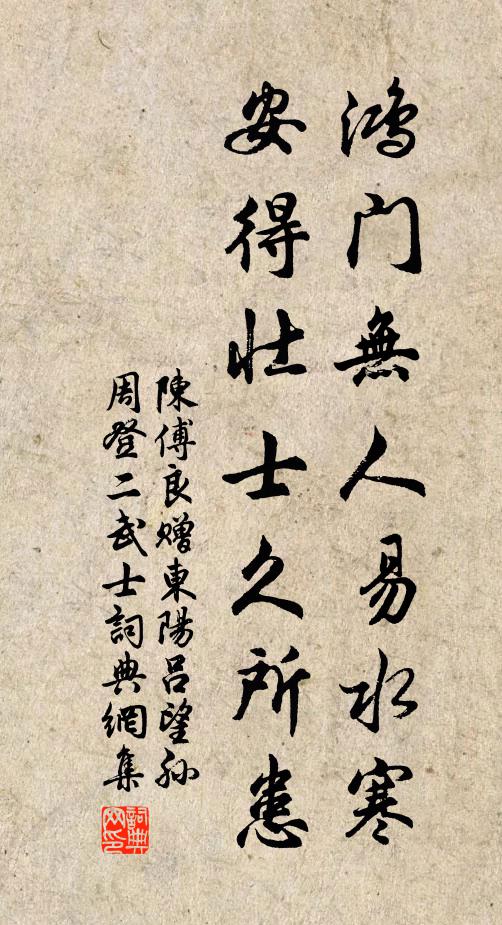 鴻門無人易水寒
安得壯士久所患
陳傅良贈東陽呂望孫
周登二武士詞典網集
詞典网印